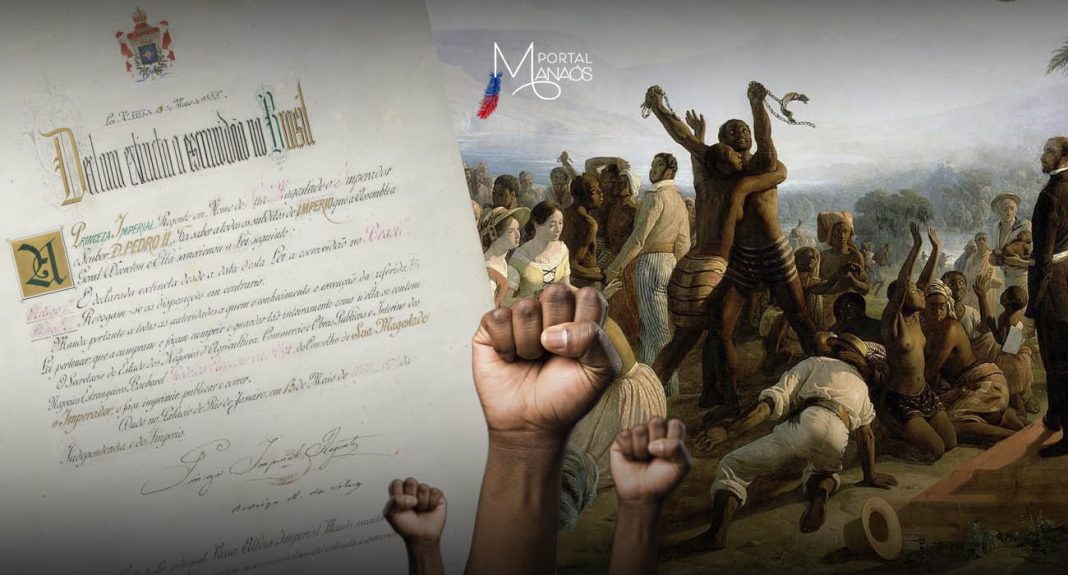 PORTAL
MANAÓS
Lei Nº 3353 de 13 de Maio de 1888.
Declara extincta a escravidão no Brasil
A PRINCEZA IMPERIAL Regente em Nome de Sua Magestade o Imperador
o Senhor D. PEDRO II, Faz saber a todos os subditos do IMPERIO que a Assembléa
Geral Decretou e Ella sanccionou a Lei seguinte:
Artigo 1º É declarada extincta desde a data d'esta Lei a escravidão no Brazil.
Revogam-se as disposições em contrario.
Manda portanto a todas as autoridades a quem o conhecimento e execução da referida
Lei pertencer, que a cumpram e façam cumprir e guardar tão inteiramente como n'ella se contem.
O Secretario de Estado dos Negocios d'Agricultura, Commercio e Obras Publicas e Interino dos
Negocios Estrangeiros, Bacharel do Conselho de Sua Magestade
o Imperador, o faça imprimir, publicar e correr.
Dado no Palacio do Rio de Janeiro, em 13 de Maio de
Independencia e do Imperio.
Princeza Imperial Regente
Rodrigo A. da Silva
Vossa Alteza Imperial Manda executar